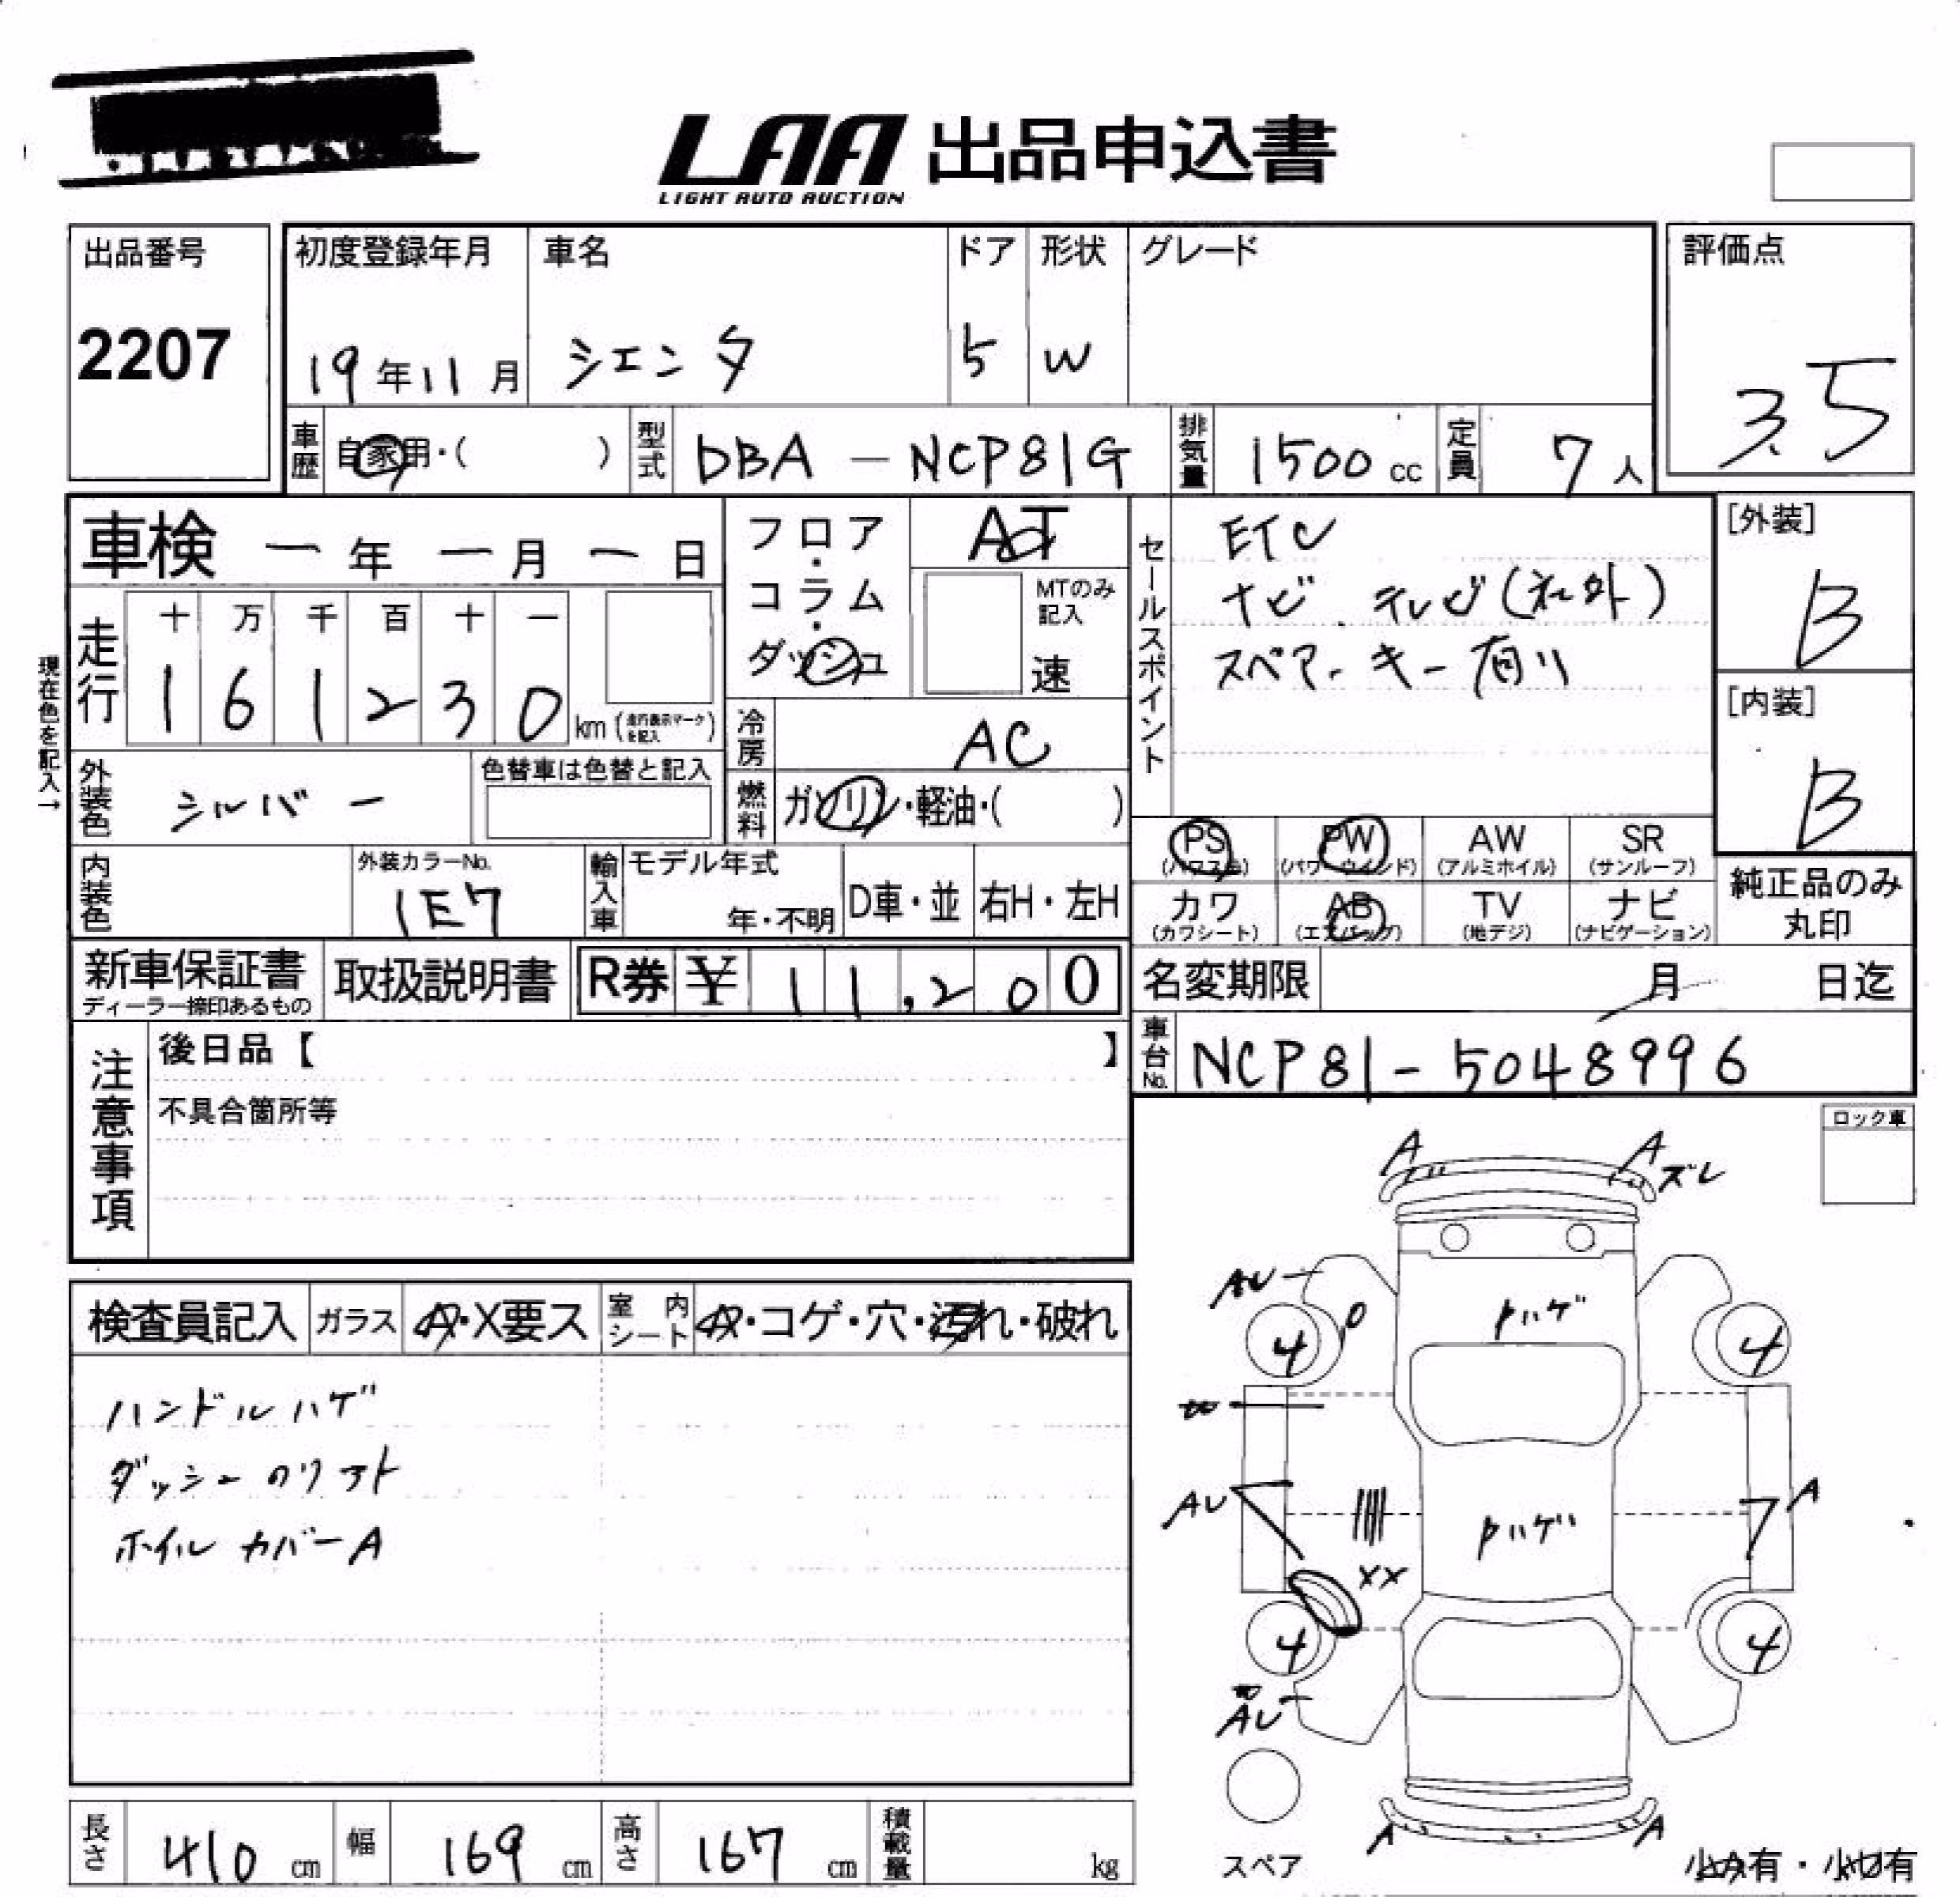 LAA 出品申込書
LIGHT AUTO AUCTION
出品番号
2207
初度登録年月
19年11月
車名
シエンタ
ドア
5
形状
W
グレード
評価点
3.5
車歴
自家用・( )
型式
DBA-NCP81G
排気量
1500cc
定員
7人
車検 ー年 ー月 ー日
フロア・コラム・ダッシュ
AT
MTのみ記入
速
セールスポイント
ETC
ナビ、テレビ(社外)
スペアーキー有り
[外装]
B
[内装]
B
現在色を記入→
走行
十 万 千 百 十 一
1 6 1 2 3 0 km (走行表示マークを記入)
冷房
AC
外装色
シルバー
色替車は色替と記入
燃料
ガソリン・軽油・( )
PS (パワステ)
PW (パワーウインド)
AW (アルミホイル)
SR (サンルーフ)
カワ (カワシート)
AB (エアバッグ)
TV (地デジ)
ナビ (ナビゲーション)
純正品のみ丸印
内装色
外装カラーNo.
1E7
輸入車
モデル年式
年・不明
D車・並
右H・左H
新車保証書
ディーラー捺印あるもの
取扱説明書
R券 ¥ 11,200
名変期限
月 日迄
車台No.
NCP81-5048996
注意事項
後日品【 】
不具合箇所等
ロック車
A
A
ズレ
AU
Pハゲ
4
4
AU
A
Pハゲ
XX
4
4
AU
A
A
スペア
小A有・小U有
検査員記入
ガラス
A・X要ス
室内シート
A・コゲ・穴・汚れ・破れ
ハンドルハゲ
ダッシュのリアト
ホイルカバーA
長さ
410cm
幅
169cm
高さ
167cm
積載量
kg